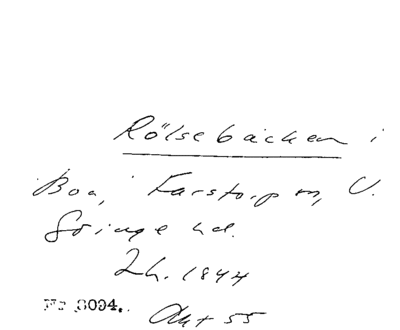 Rölsebäcken i
Boa, Farstorp sn, V.
Göinge hd.
Lh. 1844
No 8094. Akt 55